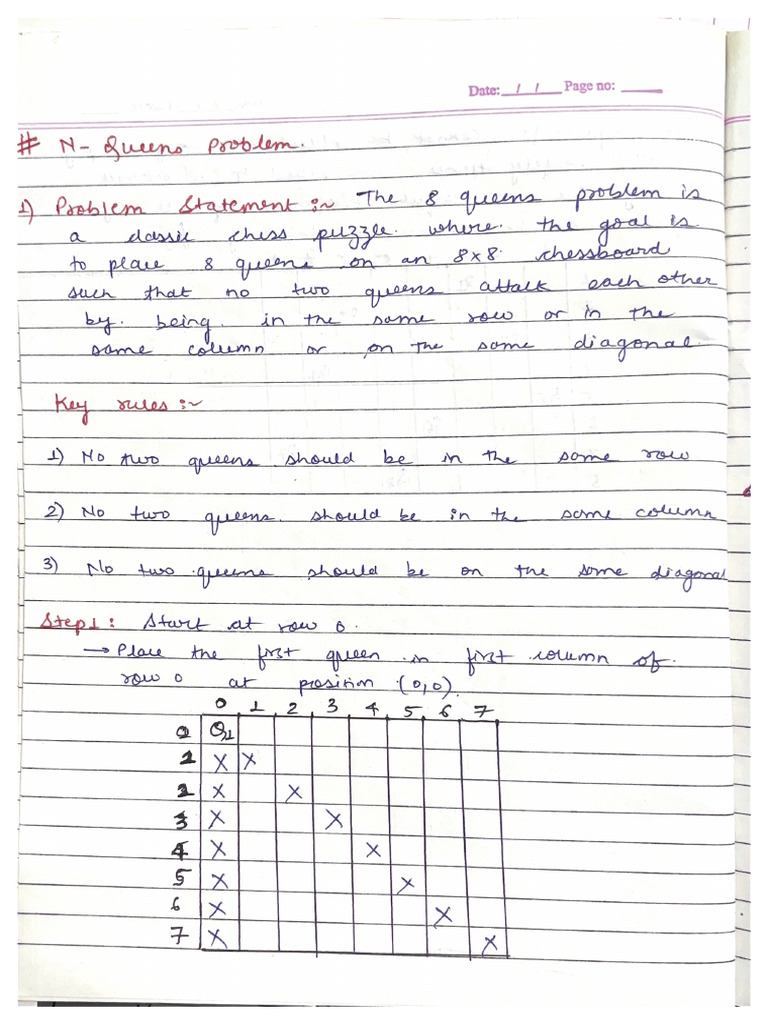 Date: / / Page no:
# N- Queens Problem.
1) Problem Statement :~ The 8 queens problem is
a classic chess puzzle. where. the goal is
to place 8 queens on an 8x8. chessboard
such that no two queens attack each other
by. being. in the same row or in the
same column or on the same diagonal
Key rules :~
1) No two queens should be in the same row
2) No two queens. should be in the same column
3) No two queens should be on the same diagonal
Step1: Start at row 0.
→ Place the first queen in first column of.
row 0 at position (0,0).
0 1 2 3 4 5 6 7
0 Q1
1 X X
2 X X
3 X X
4 X X
5 X X
6 X X
7 X X